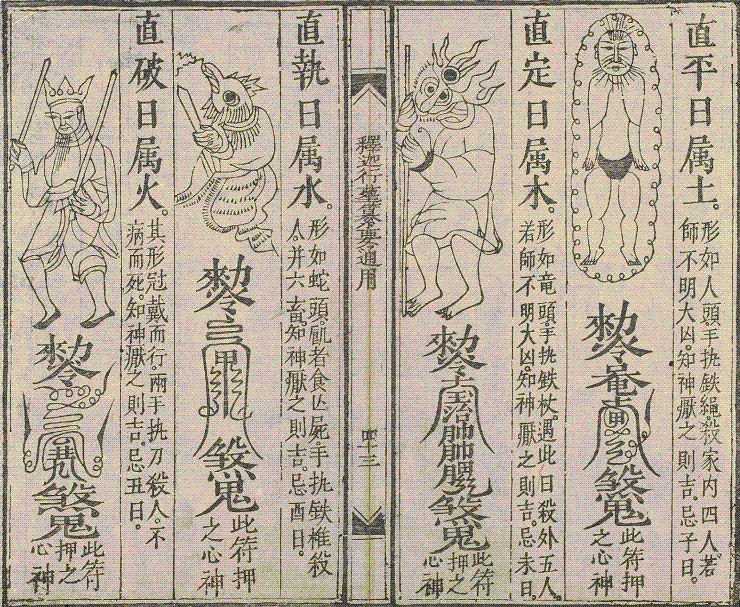 直平日属土。
形如人頭。手执铁繩殺家内四人。若
師不明大凶。知神厭之則吉。忌子日。
此符押
之心神
直定日属木。
形如竜頭。手执铁杖。遇此日殺外五人。
若師不明大凶。知神厭之則吉。忌未日。
此符
押之
心神
釋迦行
通用
四十三
直執日属水。
形如蛇頭。飢者食亾屍。手执铁椎殺
人。并六畜。知神厭之則吉。忌酉日。
此符押
之心神
直破日属火。
其形冠戴而行。兩手执刀殺人。不
病而死。知神厭之則吉。忌丑日。
此符
押之
心神